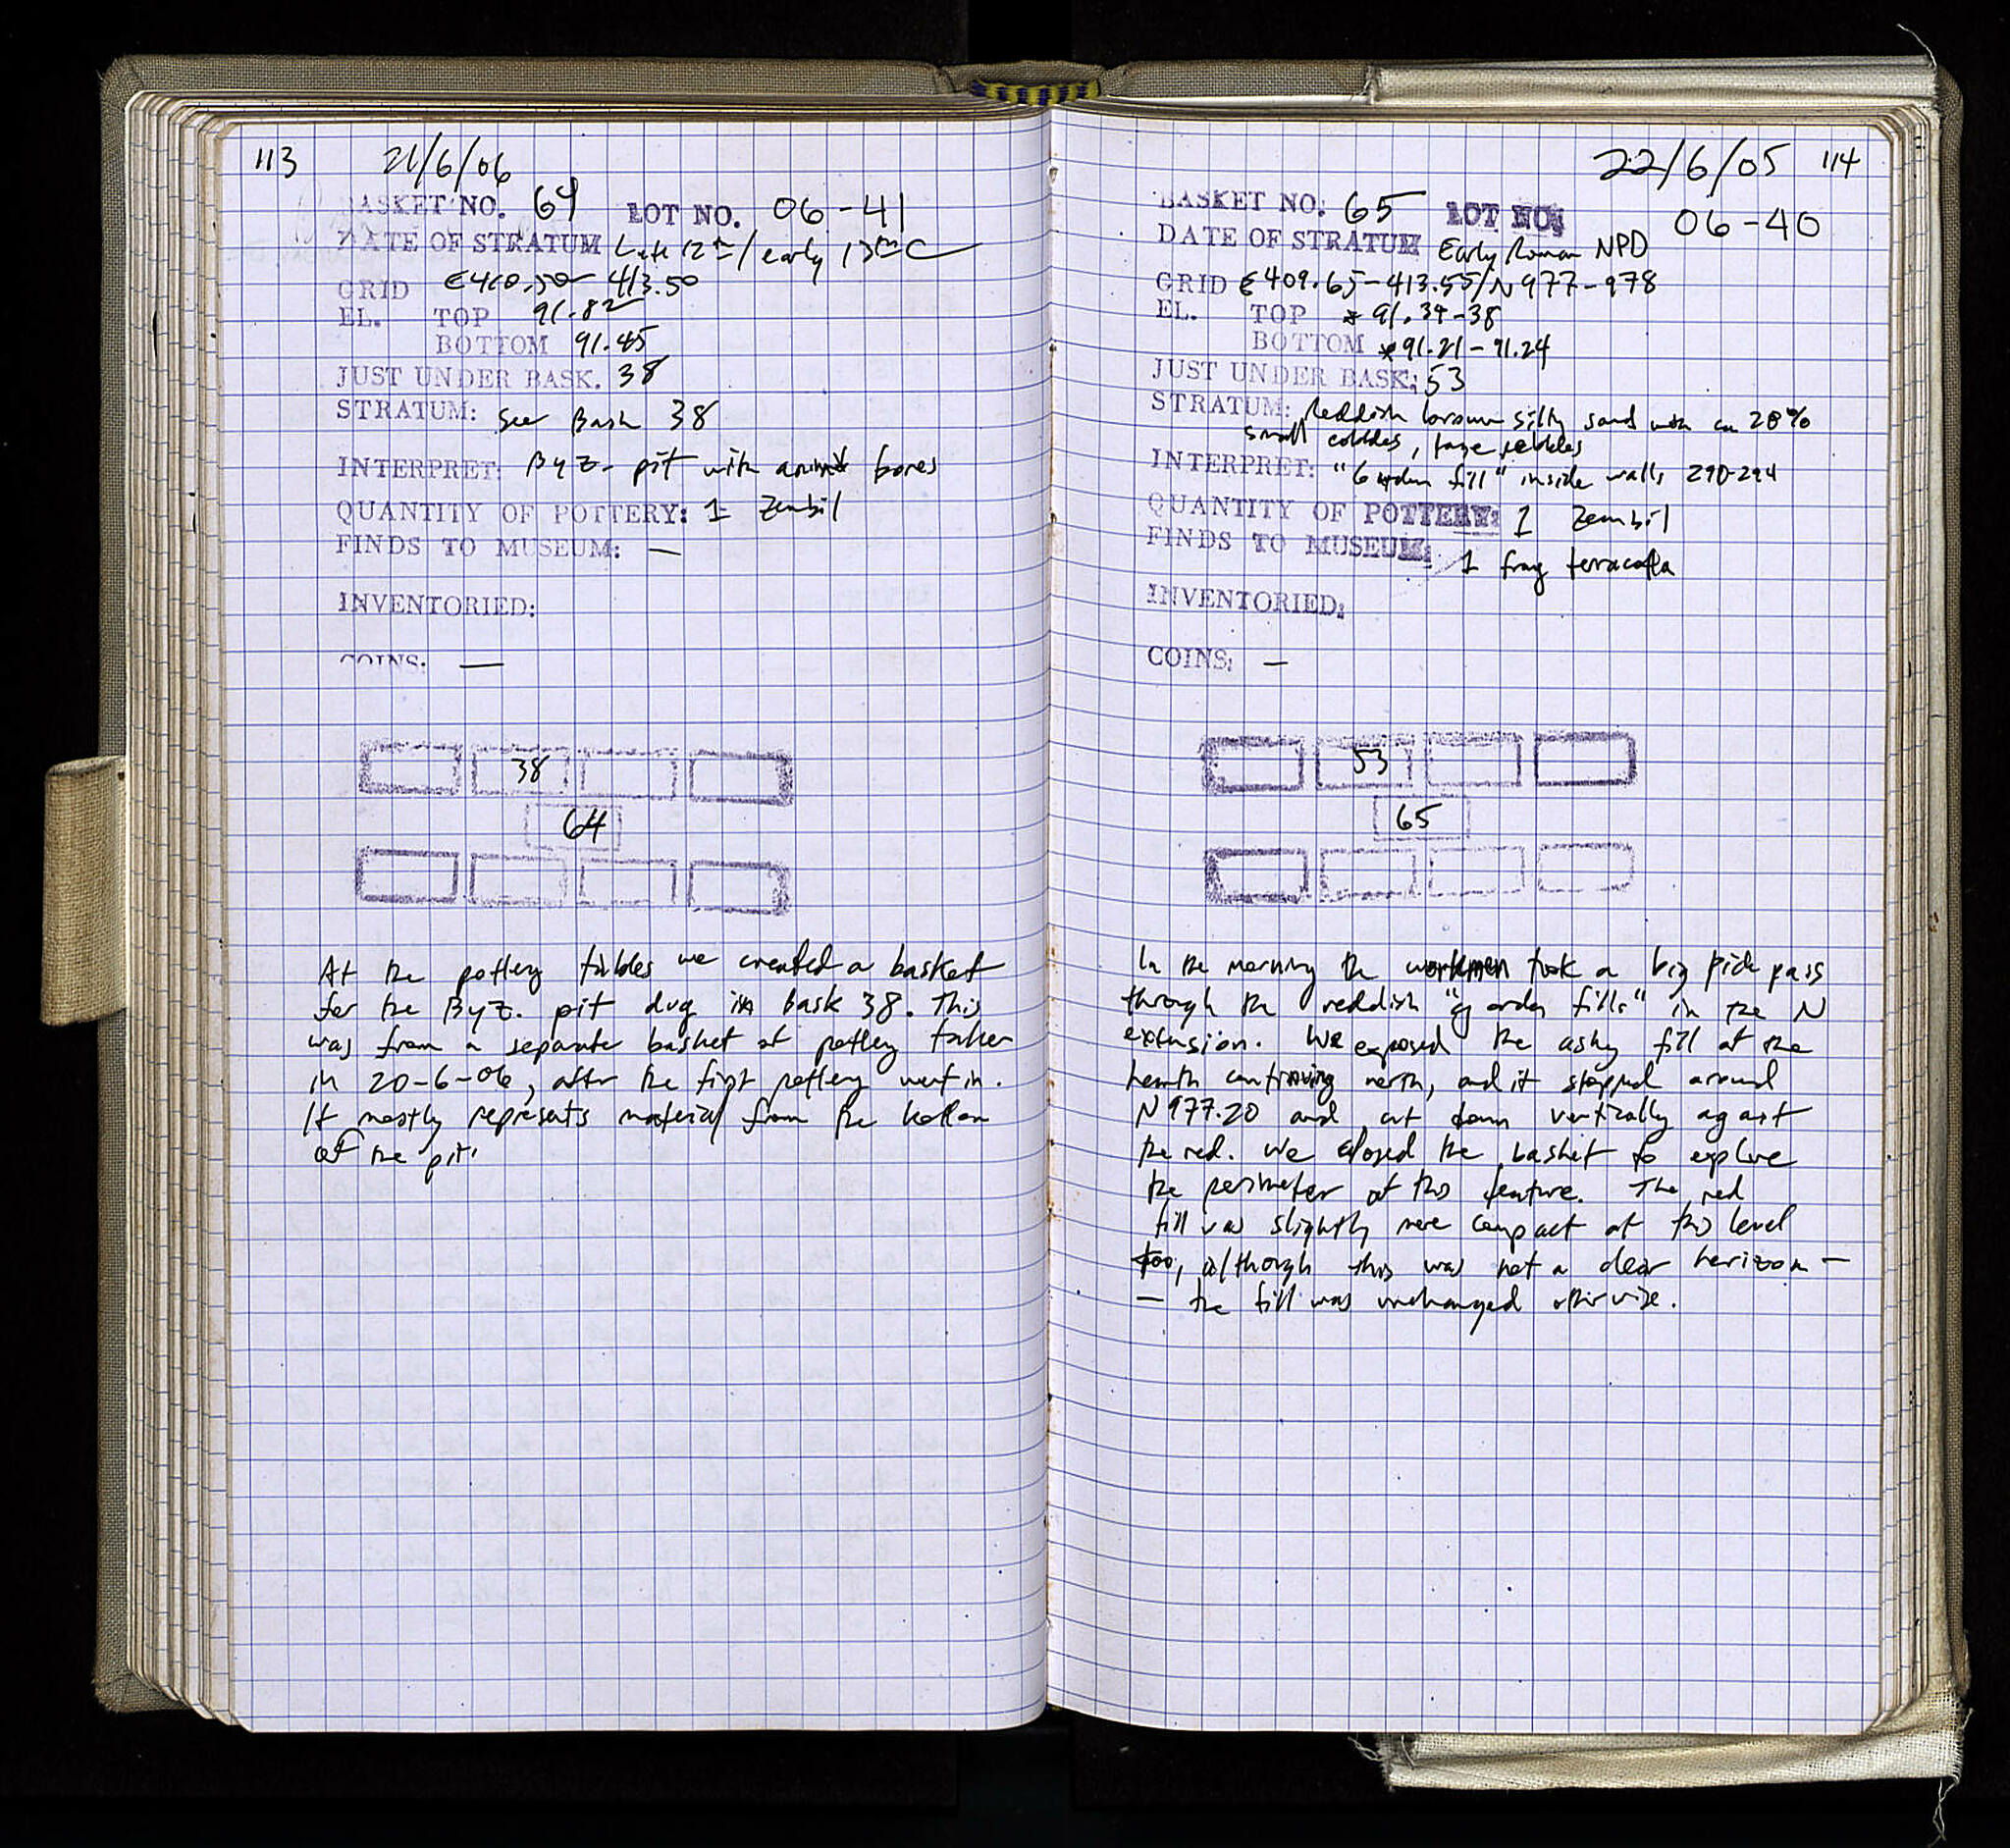 113 21/6/06
BASKET NO. 64 LOT NO. 06-41
DATE OF STRATUM Late 12th/early 13th C
GRID E410.50-413.50
EL. TOP 91.82
BOTTOM 91.45
JUST UNDER BASK. 38
STRATUM: See Bask 38
INTERPRET: Byz. pit with animal bones
QUANTITY OF POTTERY: 1 Zembil
FINDS TO MUSEUM: —
INVENTORIED:
COINS: —
38
64
At the pottery tables we created a basket
for the Byz. pit dug in bask 38. This
was from a separate basket of pottery taken
in 20-6-06, after the first pottery went in.
It mostly represents material from the bottom
of the pit.
22/6/05 114
BASKET NO. 65 LOT NO. 06-40
DATE OF STRATUM Early Roman NPD
GRID E409.65-413.55/N977-978
EL. TOP * 91.34-38
BOTTOM *91.21-91.24
JUST UNDER BASK: 53
STRATUM: Reddish brown silty sand with ca 20%
small cobbles, large pebbles
INTERPRET: "Garden fill" inside walls 290-294
QUANTITY OF POTTERY: 1 Zembil
FINDS TO MUSEUM: 1 frag terracotta
INVENTORIED:
COINS: —
53
65
In the morning the workmen took a big pick pass
through the reddish "garden fills" in the N
extension. We exposed the ashy fill of the
hearth continuing north, and it stopped around
N977.20 and cut down vertically against
the red. We closed the basket to explore
the perimeter of this feature. The red
fill was slightly more compact at this level
too, although this was not a clear horizon —
— the fill was unchanged otherwise.